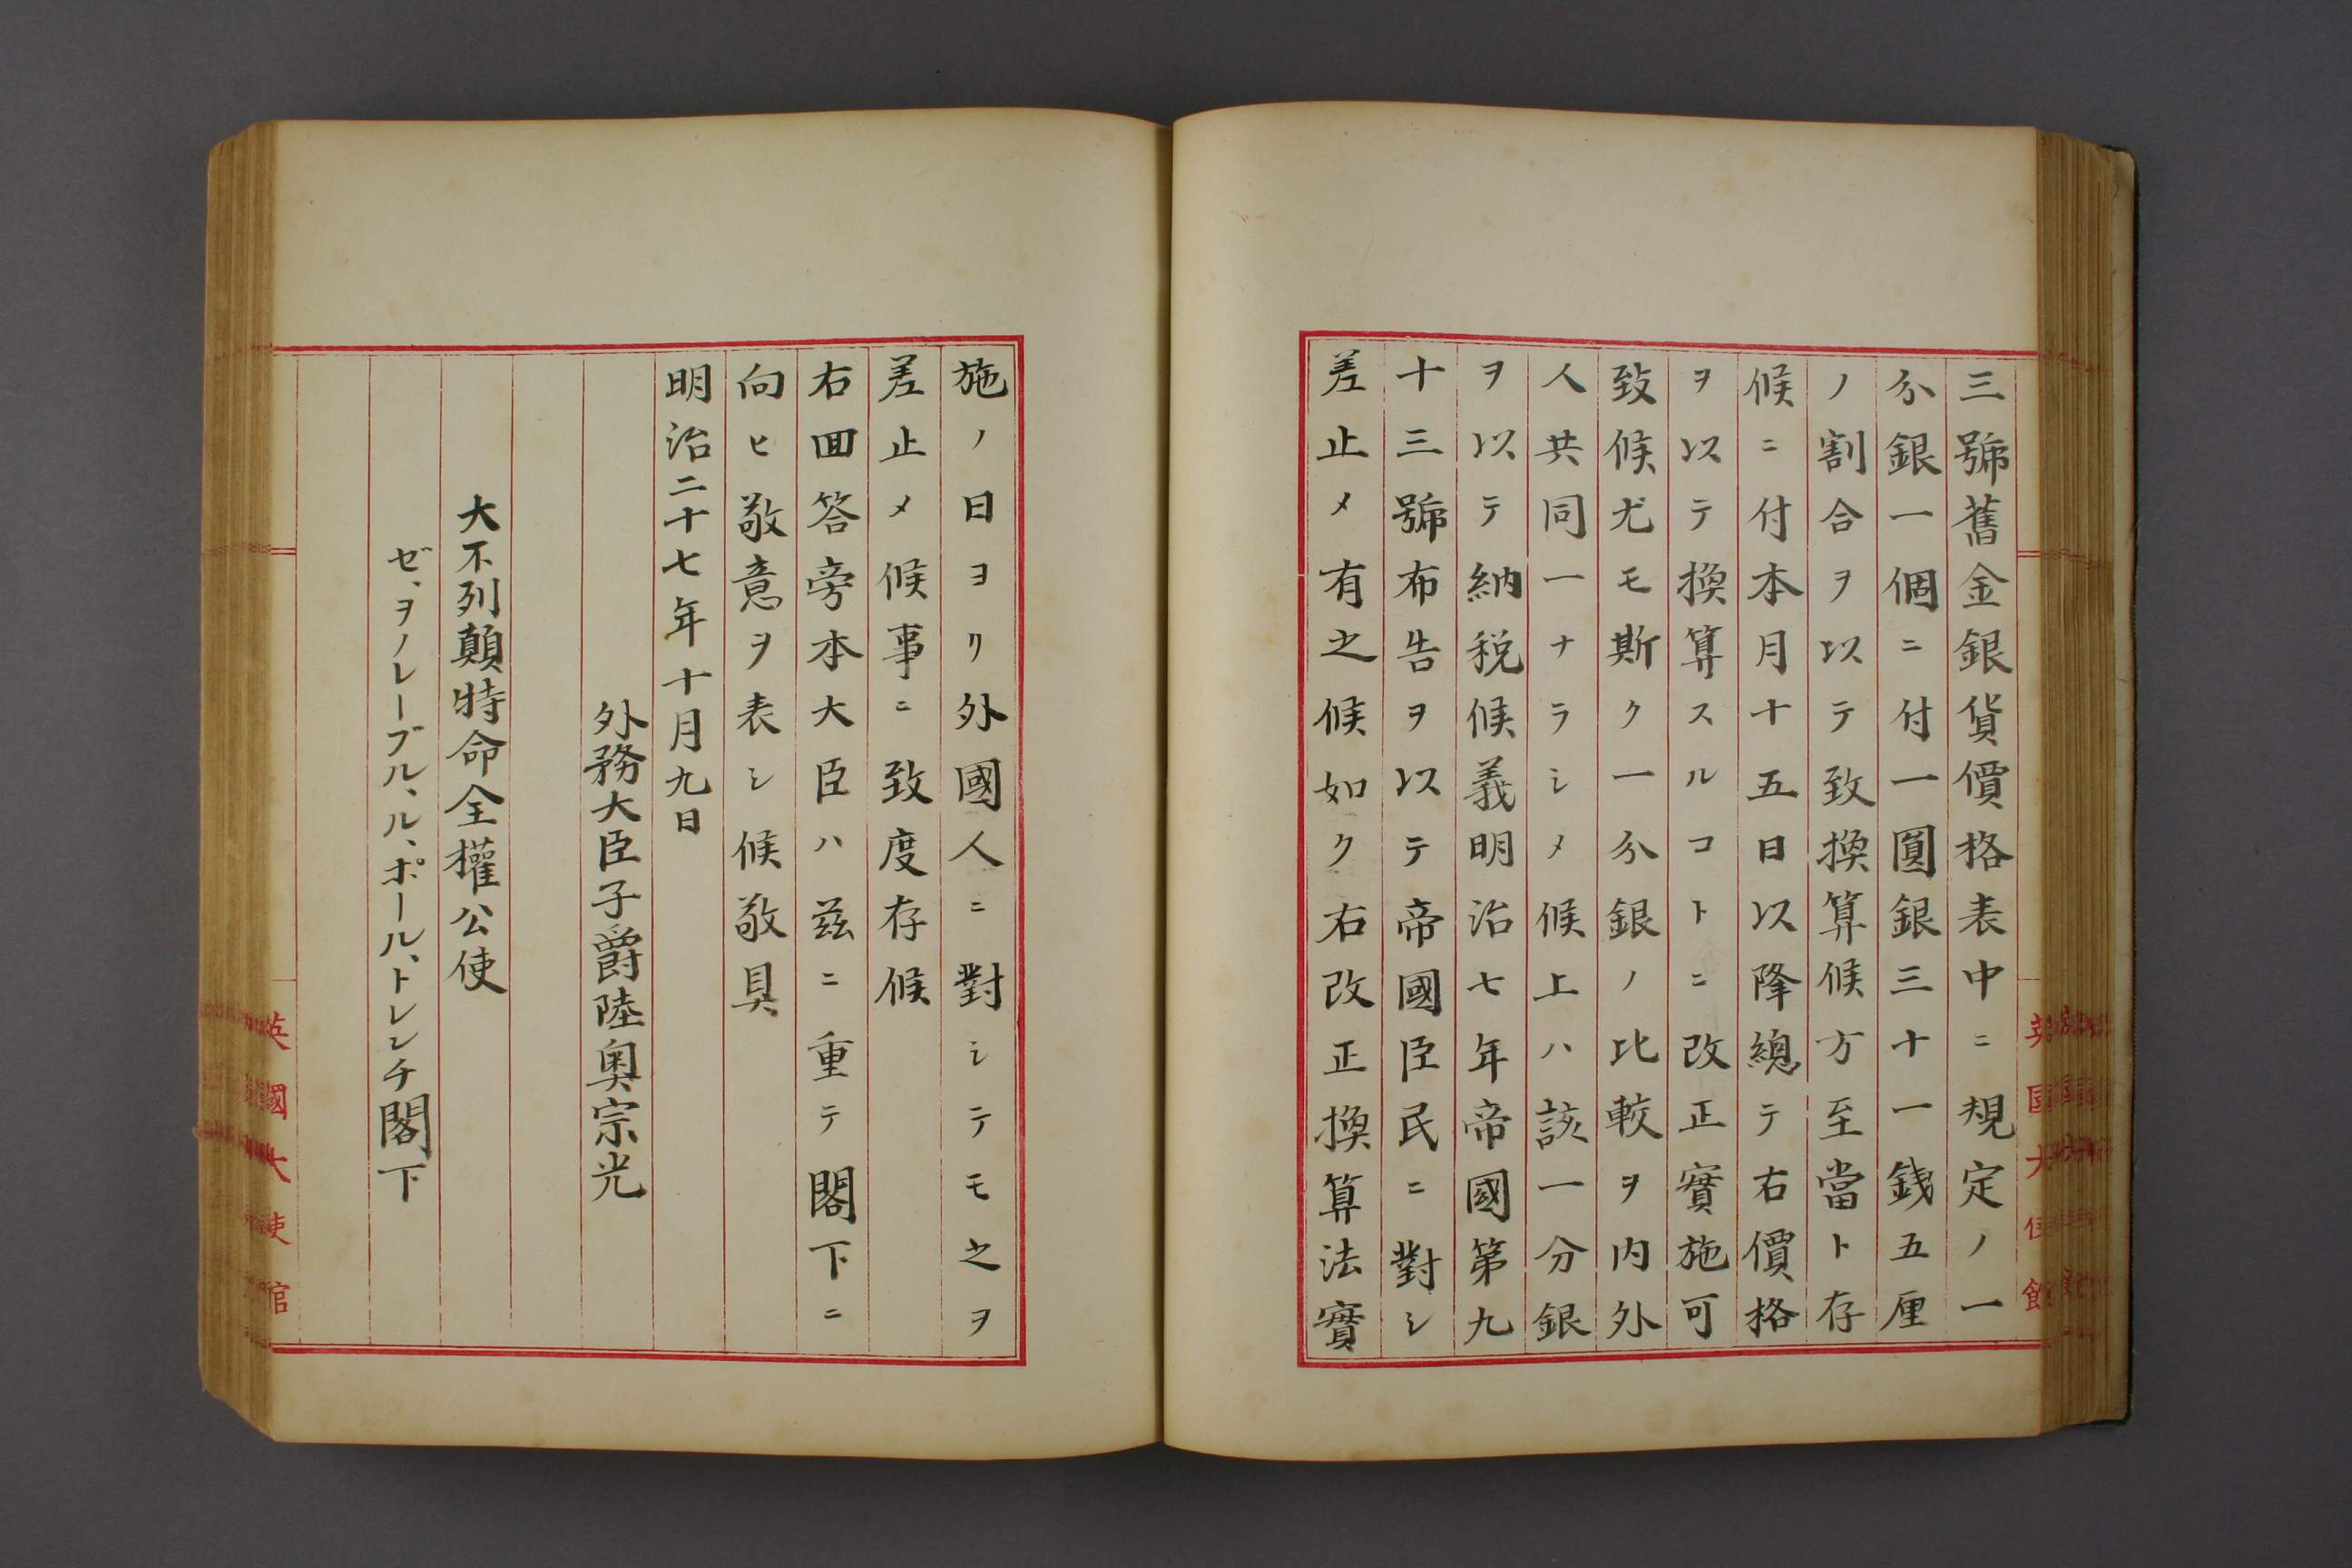 三號舊金銀貨價格表中ニ規定ノ一
分銀一個ニ付一圓銀三十一銭五厘
ノ割合ヲ以テ致換算候方至當ト存
候ニ付本月十五日以降總テ右價格
ヲ以テ換算スルコトニ改正實施可
致候尤モ斯ク一分銀ノ比較ヲ内外
人共同一ナラシメ候上ハ該一分銀
ヲ以テ納税候義明治七年帝國第九
十三號布告ヲ以テ帝國臣民ニ對シ
差止メ有之候如ク右改正換算法實
施ノ日ヨリ外國人ニ對シテモ之ヲ
差止メ候事ニ致度存候
右回答旁本大臣ハ茲ニ重テ閣下ニ
向ヒ敬意ヲ表シ候敬具
明治二十七年十月九日
外務大臣子爵陸奥宗光
大不列顛特命全權公使
ゼ、ヲノレーブル、ル、ポール、トレンチ閣下
英國大使館